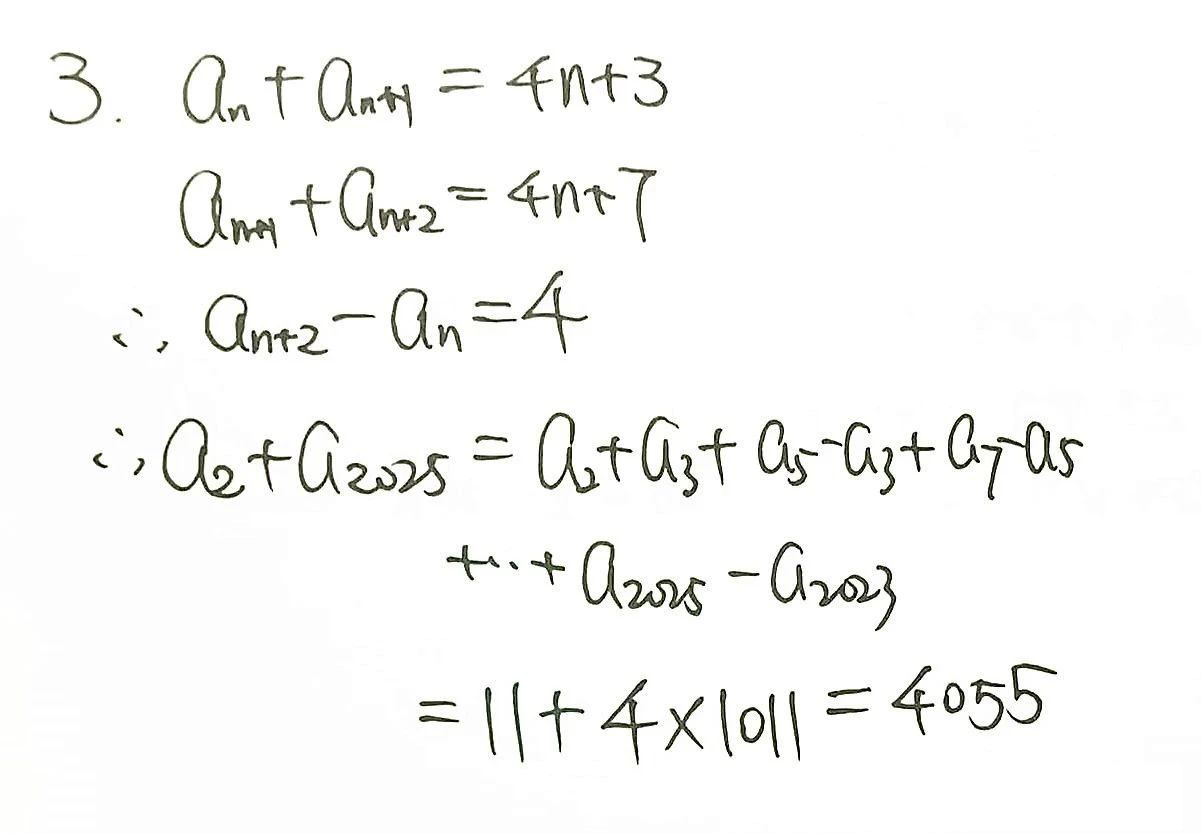 3. aₙ + aₙ₊₁ = 4n+3
aₙ₊₁ + aₙ₊₂ = 4n+7
∴, aₙ₊₂ − aₙ = 4
∴, a₂ + a₂₀₂₅ = a₂ + a₃ + a₅ − a₃ + a₇ − a₅
+⋯+ a₂₀₂₅ − a₂₀₂₃
= 11 + 4 × 1011 = 4055